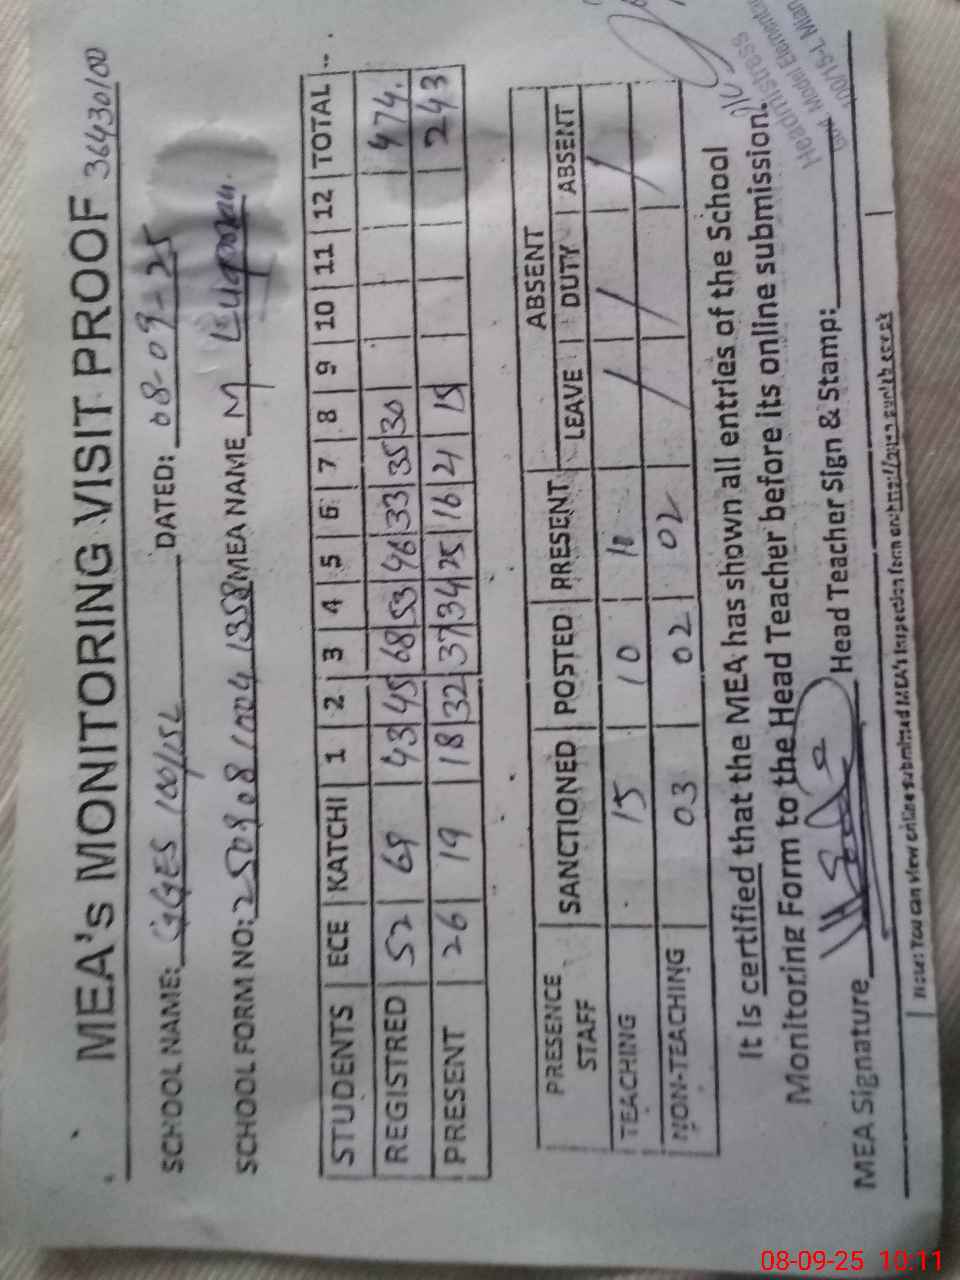 MEA's MONITORING VISIT PROOF 36430100
SCHOOL NAME: GGES 100/15L DATED: 08-09-25
SCHOOL FORM NO: MEA NAME M
STUDENTS ECE KATCHI 1 2 3 4 5 6 7 8 9 10 11 12 TOTAL
REGISTRED 52 69 43 45 68 53 46 33 35 30 474.
PRESENT 26 19 18 32 37 34 25 16 21 15 243
PRESENCE STAFF SANCTIONED POSTED PRESENT ABSENT
LEAVE DUTY ABSENT
TEACHING 15 10 10 / / /
NON-TEACHING 03 02 02 / / /
It is certified that the MEA has shown all entries of the School
Monitoring Form to the Head Teacher before its online submission.
MEA Signature Head Teacher Sign & Stamp:
Headmistress
Model Elementary
100/15-L Mian
Note: You can view online submitted MEA's Inspection form on
08-09-25 10:11